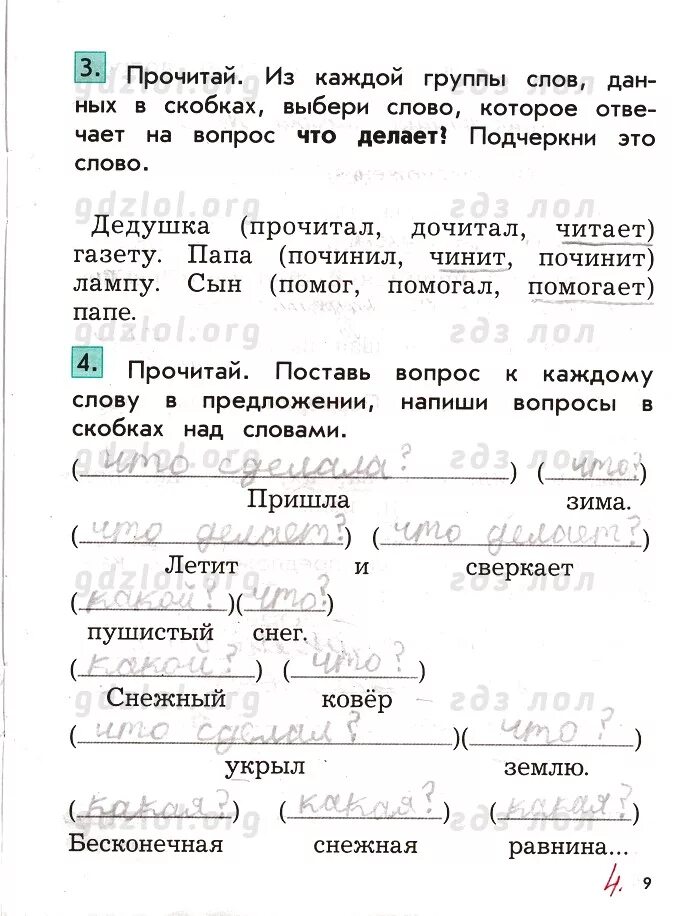 3. Прочитай. Из каждой группы слов, дан-
gdzlol.org гдз лол
ных в скобках, выбери слово, которое отве-
чает на вопрос что делает? Подчеркни это
слово.
gdzlol.org гдз лол
Дедушка (прочитал, дочитал, читает)
газету. Папа (починил, чинит, починит)
лампу. Сын (помог, помогал, помогает)
папе.
gdzlol.org гдз лол
4. Прочитай. Поставь вопрос к каждому
слову в предложении, напиши вопросы в
скобках над словами.
gdzlol.org гдз лол
(что сделала?) (что?)
Пришла зима.
(что делает?) (что делает?)
Летит и сверкает
gdzlol.org гдз лол
(какой?)(что?)
пушистый снег.
(какой?) (что?)
Снежный ковёр
gdzlol.org гдз лол
(что сделал?)(что?)
укрыл землю.
(какая?) (какая?) (какая?)
gdzlol.org гдз лол
Бесконечная снежная равнина...
4. 9